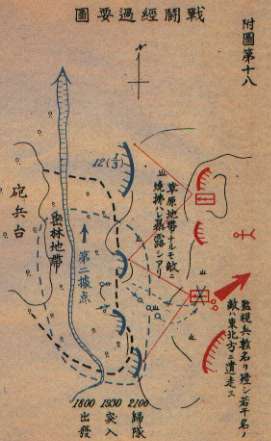 附圖第十八
戰鬪經過要圖
12(1/3)
砲兵台
密林地帶
第二據点
草原地帶ナルモ敵ニ
燒拂ハレ暴露シアリ
監視兵數名ヲ殘シ若干名ノ
敵ハ東北方ニ遁走ス
1800
出發
1930
突入
2100
歸隊